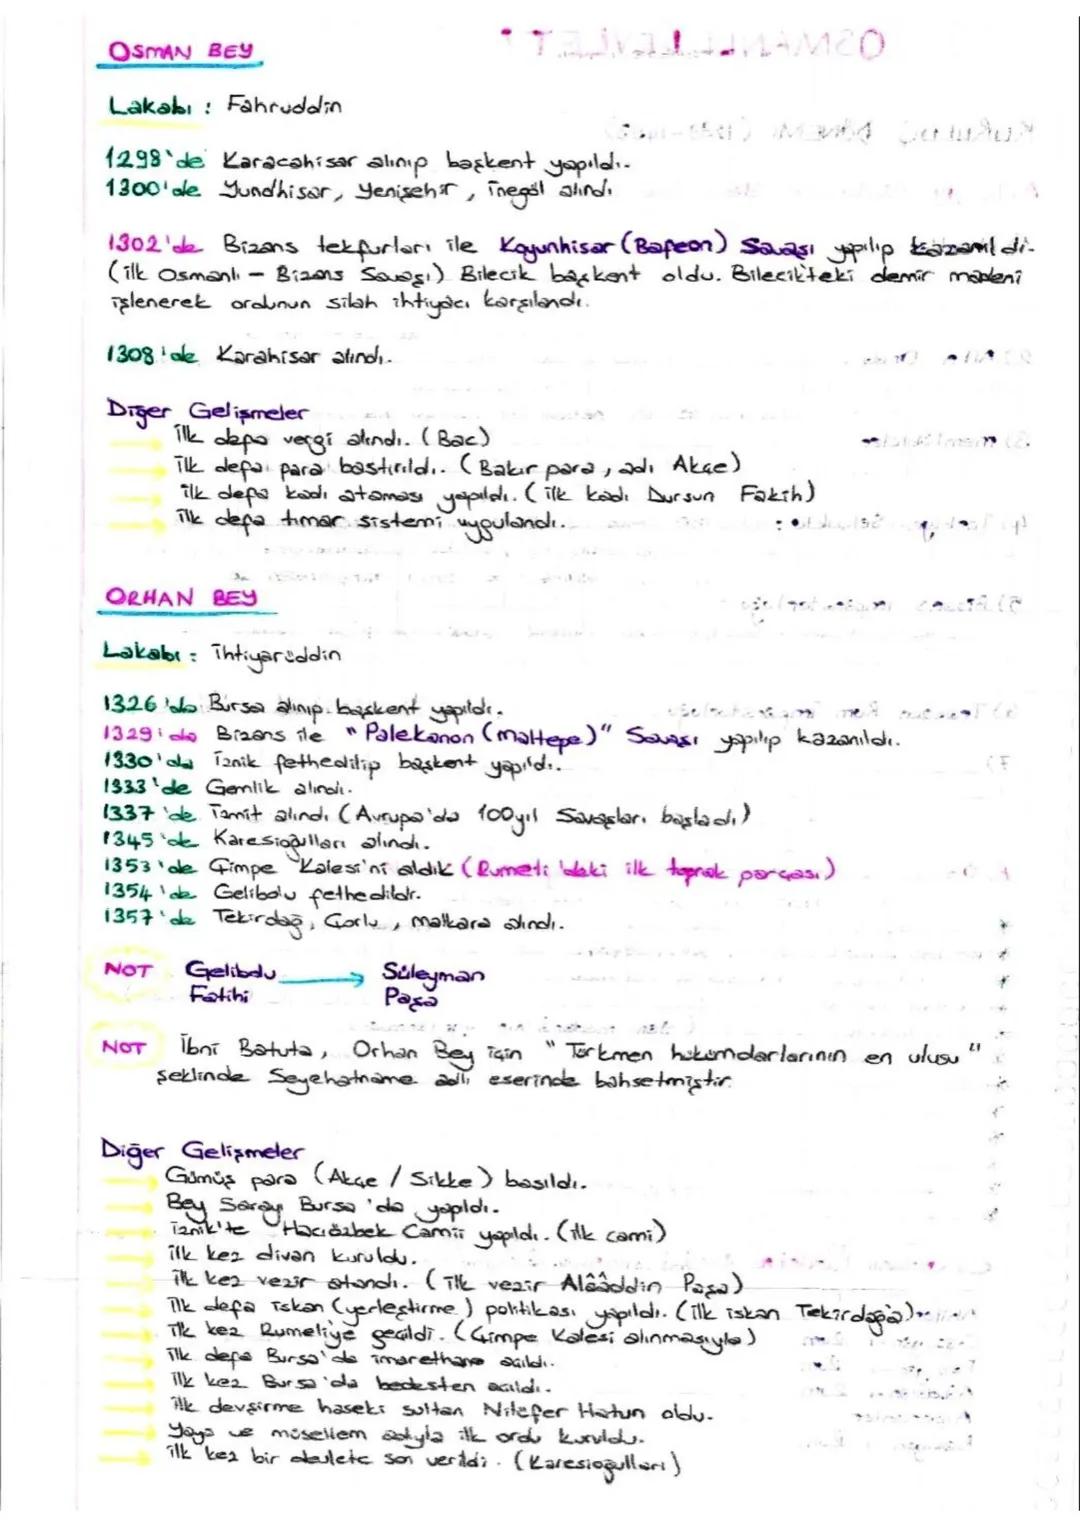 OSMAN BEY
Lakabı : Fahruddin
1298'de Karacahisar alınıp başkent yapıldı.
1300'de Yundhisar, Yenişehir, İnegöl alındı
1302'de Bizans tekfurları ile Koyunhisar (Bafeon) Savaşı yapılıp kazanıldı.
(ilk Osmanlı - Bizans Savaşı) Bilecik başkent oldu. Bilecik'teki demir madeni
işlenerek ordunun silah ihtiyacı karşılandı.
1308'de Karahisar alındı.
Diğer Gelişmeler
İlk defa vergi alındı. (Bac)
İlk defa para bastırıldı. (Bakır para, adı Akçe)
ilk defa kadı ataması yapıldı. (ilk kadı Dursun Fakih)
İlk defa tımar sistemi uygulandı.
ORHAN BEY
Lakabı : İhtiyarüddin
1326'da Bursa alınıp başkent yapıldı.
1329'da Bizans ile "Palekanon (maltepe)" Savaşı yapılıp kazanıldı.
1330'da İznik fethedilip başkent yapıldı.
1333'de Gemlik alındı.
1337'de İzmit alındı (Avrupa'da 100yıl Savaşları başladı)
1345'de Karesioğulları alındı.
1353'de Çimpe Kalesi'ni aldık (Rumeli'deki ilk toprak parçası)
1354'de Gelibolu fethedildi.
1357'de Tekirdağ, Çorlu, malkara alındı.
NOT Gelibolu → Süleyman
Fatihi Paşa
NOT İbni Batuta, Orhan Bey için "Türkmen hükümdarlarının en ulusu"
şeklinde Seyehatname adlı eserinde bahsetmiştir.
Diğer Gelişmeler
Gümüş para (Akçe / Sikke) basıldı.
Bey Sarayı Bursa'da yapıldı.
İznik'te Hacıözbek Camii yapıldı. (ilk cami)
İlk kez divan kuruldu.
İlk kez vezir atandı. (İlk vezir Alâaddin Paşa)
İlk defa iskan (yerleştirme) politikası yapıldı. (İlk iskan Tekirdağ'a)
İlk kez Rumeli'ye geçildi. (Çimpe Kalesi alınmasıyla)
İlk defa Bursa'da imarethane açıldı.
İlk kez Bursa'da bedesten açıldı.
İlk devşirme haseki sultan Nilüfer Hatun oldu.
Yaya ve müsellem adıyla ilk ordu kuruldu.
İlk kez bir devlete son verildi. (Karesioğulları)